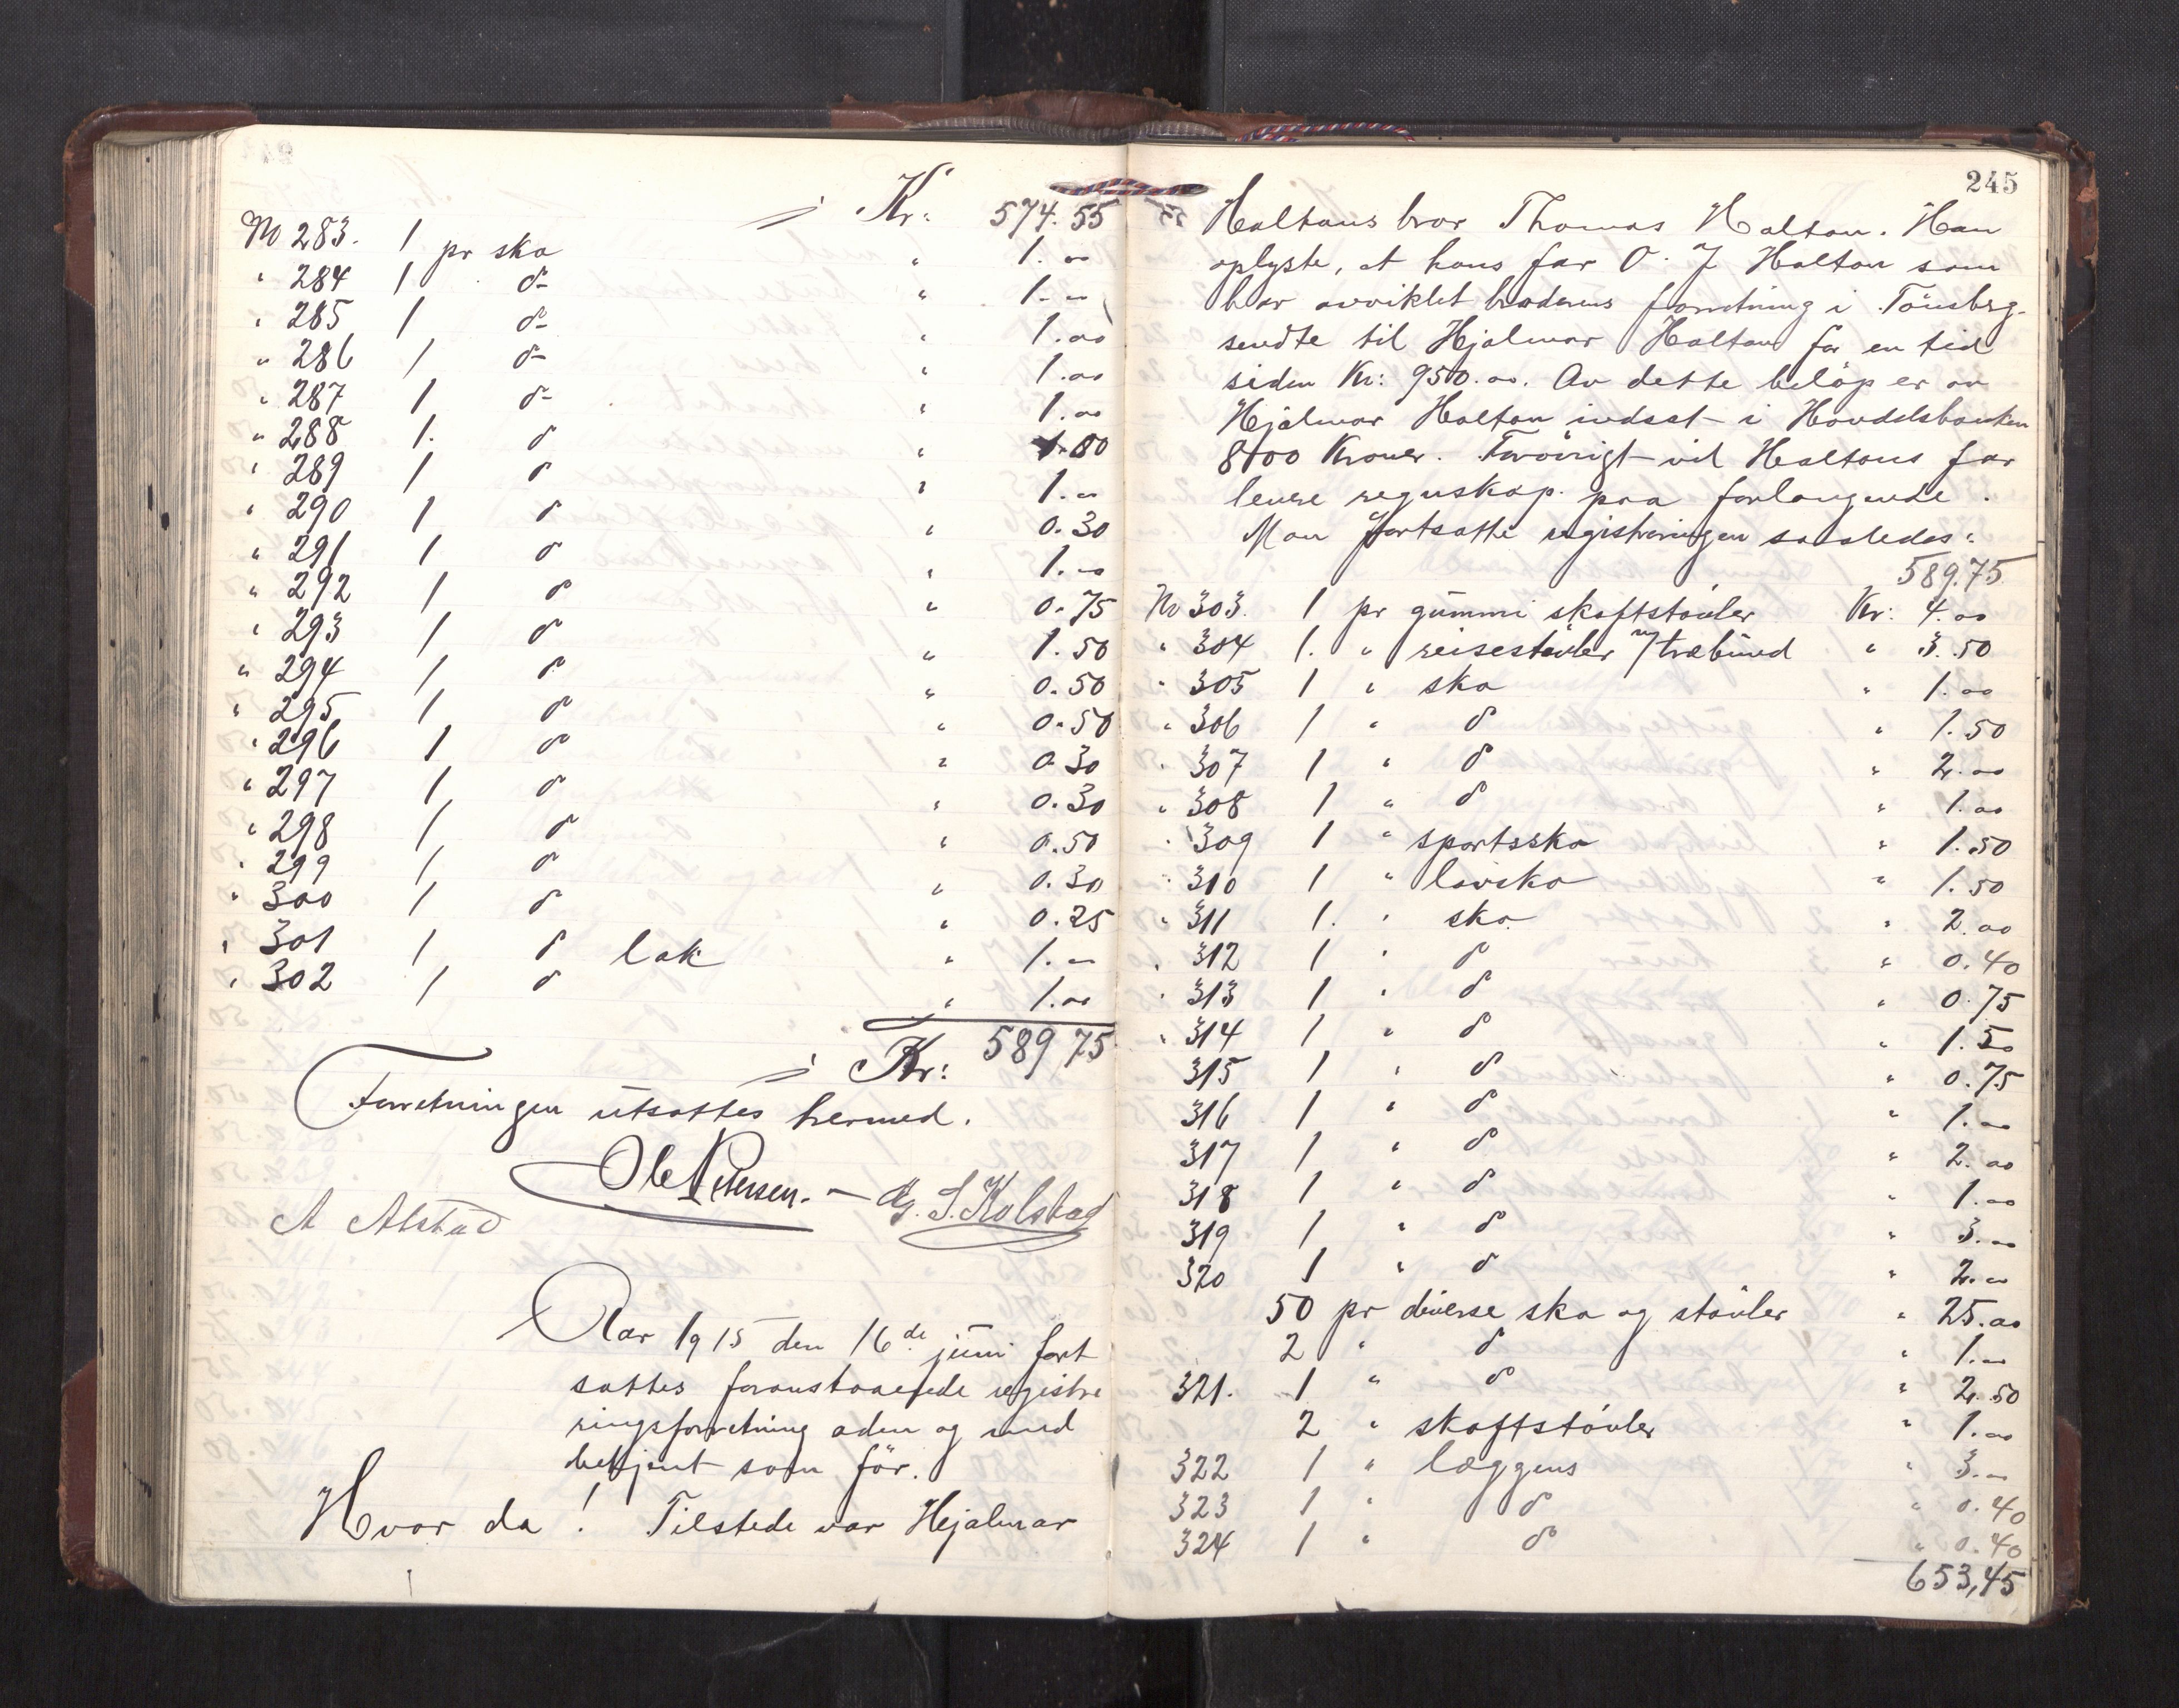 Kr: 574.55
No 283. 1 pr sko " 1.00
" 284 1 do " 1.00
" 285 1 do " 1.00
" 286 1 do " 1.00
" 287 1 do " 1.00
" 288 1. do " 1.80
" 289 1 do " 1.00
" 290 1 do " 0.30
" 291 1 do " 1.00
" 292 1 do " 0.75
" 293 1 do " 1.50
" 294 1 do " 0.50
" 295 1 do " 0.50
" 296 1 do " 0.30
" 297 1 do " 0.30
" 298 1 do " 0.50
" 299 1 do " 0.30
" 300 1 do " 0.25
" 301 1 do lak " 1.00
" 302 1 do " 1.00
Kr: 589 75
Forretningen utsattes hermed.
Ole Petersen. – S. Kolstad
A Alstad
Aar 1915 den 16de juni fort
sattes foranstaaende registre
ringsforretning aden og med
betjent som før.
Hvor da! Tilstede var Hjalmar
245
Haltons bror Thomas Halton. Han
oplyste, at hans far O. J Halton som
har avviklet broderens forretning i Tønsbrg.
sendte til Hjalmar Halton for en tid
siden Kr: 950.00. Av dette beløp er av
Hjalmar Halton indsat i Handelsbanken
8400 Kroner. Forøvrigt vil Haltons far
levere regnskap paa forlangende.
Man fortsatte registreringen saaledes:
589.75
No 303. 1 pr gummi skaftstøvler Kr: 4.00
" 304 1. " reisestøvler m/ træbund " 3.50
" 305 1 " sko " 1.00
" 306 1 " do " 1.50
" 307 1 " do " 2.00
" 308 1 " do " 1.00
" 309 1 " sportssko " 1.50
" 310 1 " lavsko " 1.50
" 311 1. " sko " 2.00
" 312 1 " do " 0.40
" 313 1 " do " 0.75
" 314 1 " do " 1.50
315 1 " do " 0.75
316 1 " do " 1.00
317 1 " do " 2.00
318 1 " do " 1.00
319 1 " do " 3.00
320 1 " do " 2.00
50 pr diverse sko og støvler " 25.00
2 " do " 1.00
321. 1 " do " 2.50
2 " skaftstøvler " 1.00
322 1 " læggens " 3.00
323 1 " do " 0.40
324 1 " do " 0.40
653,45